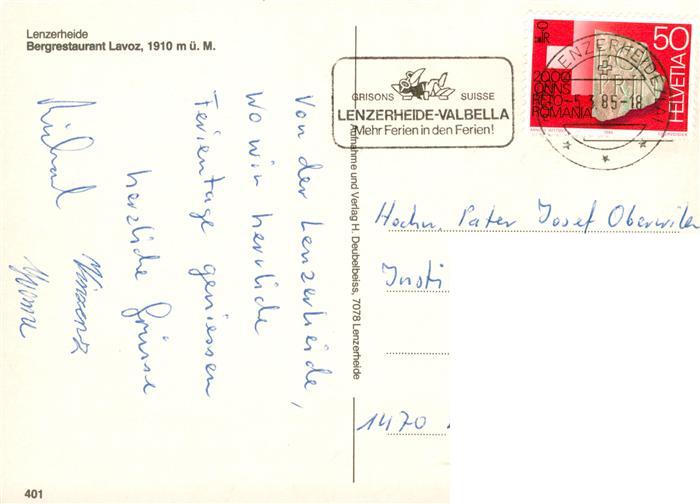 Lenzerheide
Bergrestaurant Lavoz, 1910 m ü. M.
GRISONS SUISSE
LENZERHEIDE-VALBELLA
Mehr Ferien in den Ferien!
50
HELVETIA
2000
ONNS
RETO-
ROMANIA
LENZERHEIDE
-5.3.85-18
Von der Lenzerheide,
wo wir herrliche
Ferientage geniessen
herzliche Grüsse
Vinzenz
Yvonne
Aufnahme und Verlag H. Deubelbeiss, 7078 Lenzerheide
Hochw. Pater Josef Oberwiler
Insti
1470
401